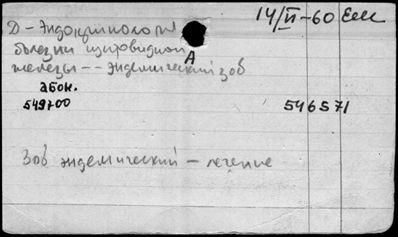 14/VI-60 Еми
Д - Эндокринологи
болезни щитовидной
А
железы -- эндемический зоб
абон.
549700 546571
Зоб эндемический - лечение